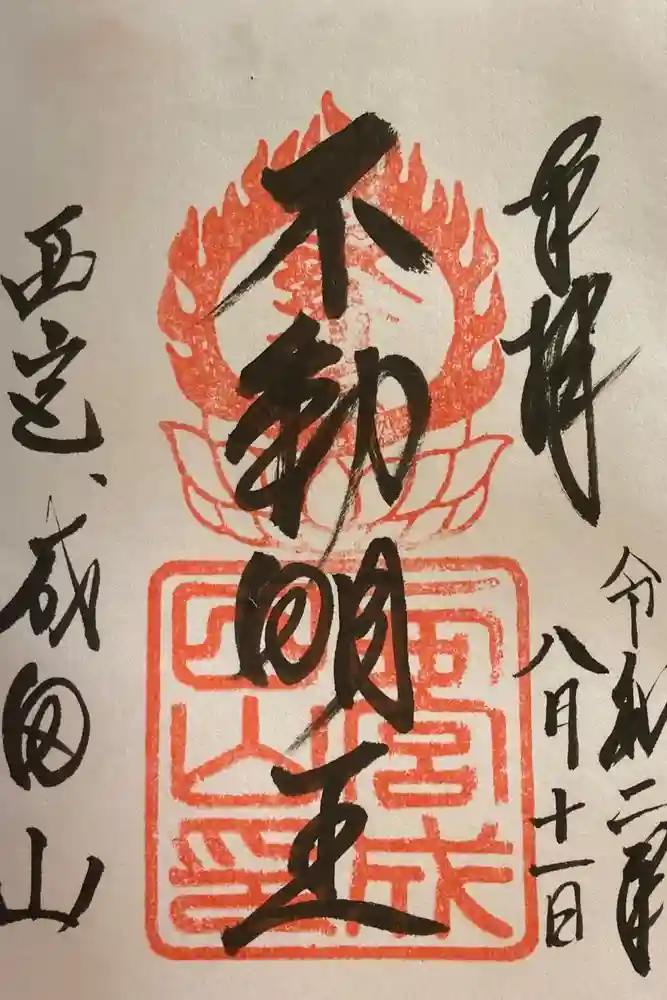 奉拝
令和二年
八月十一日
不動明王
西宮成田山
西宮成
田山印